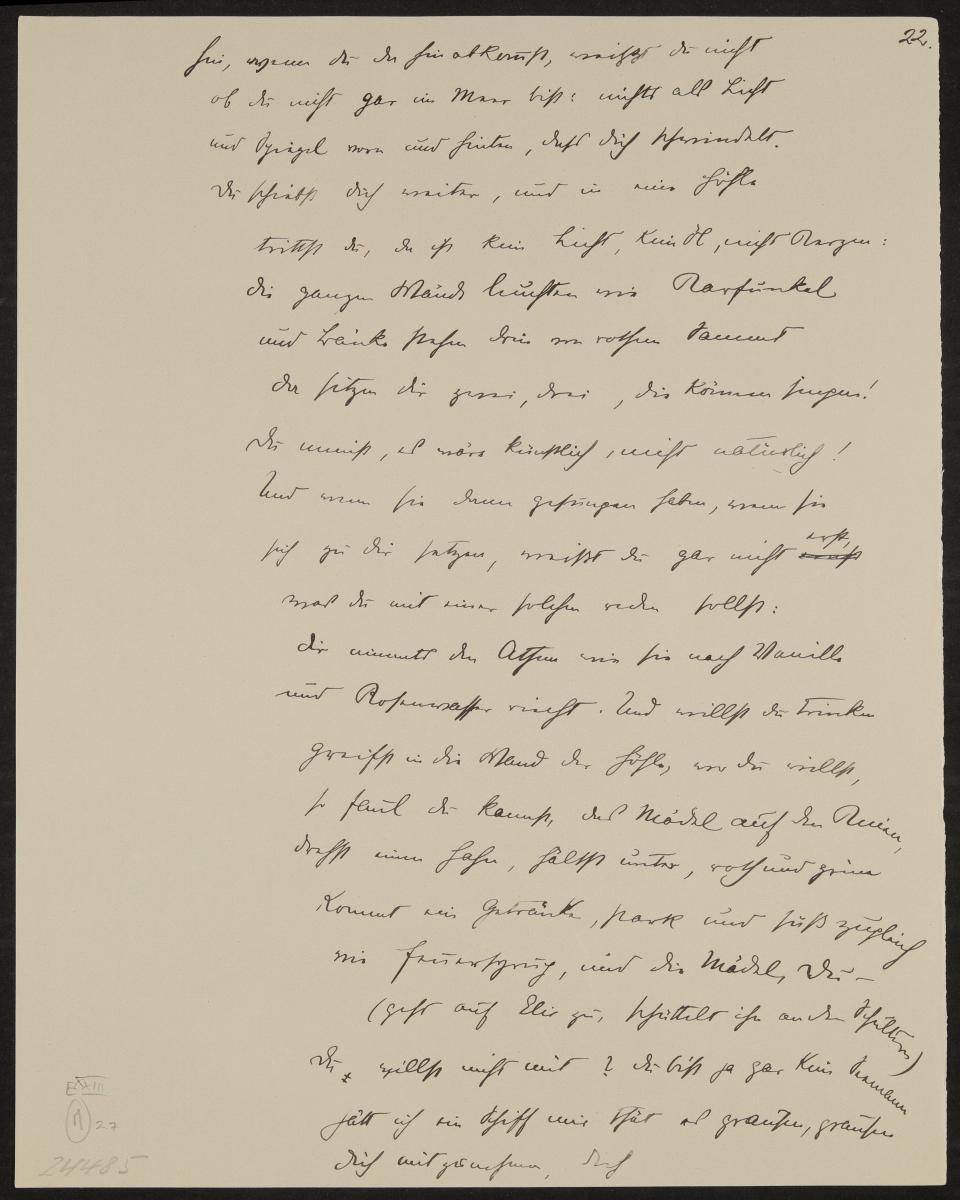 22.
hin, wenn du da hinabkommst, weißt du nicht
ob du nicht gar im Meer bist: nichts als Licht
und Spiegel vorn und hinten, dass dich schwindelt.
Du schiebst dich weiter, und in eine Höhle
trittst du, da ist kein Licht, kein Öl, nicht Kerzen:
die ganzen Wände leuchten wie Karfunkel
und Bänke stehen drin von rothem Sammt
da sitzen dir zwei, drei, die können singen!
Du meinst, es wäre künstlich, nicht natürlich!
Und wenn sie dann gesungen haben, wenn sie
sich zu dir setzen, weißt du gar nicht erst,
was du mit einer solchen reden sollst:
dir nimmts den Athem wie sie nach Vanille
und Rosenwasser riecht. Und willst du trinken
greifst in die Wand der Höhle, wo du willst,
so faul du kannst, das Mädel auf den Knien,
drehst einen Hahn, hältst unter, roth und grün
kommt ein Getränke, stark und süß zugleich
wie Feuer, und die Mädel, Du –
(geht auf Elis zu, schüttelt ihn an den Schultern)
Du willst nicht mit? du bist ja gar kein Seemann
hätt ich ein Schiff mir thät es grausen, grausen
dich mitzunehmen, dich
EXXIII
27
24485